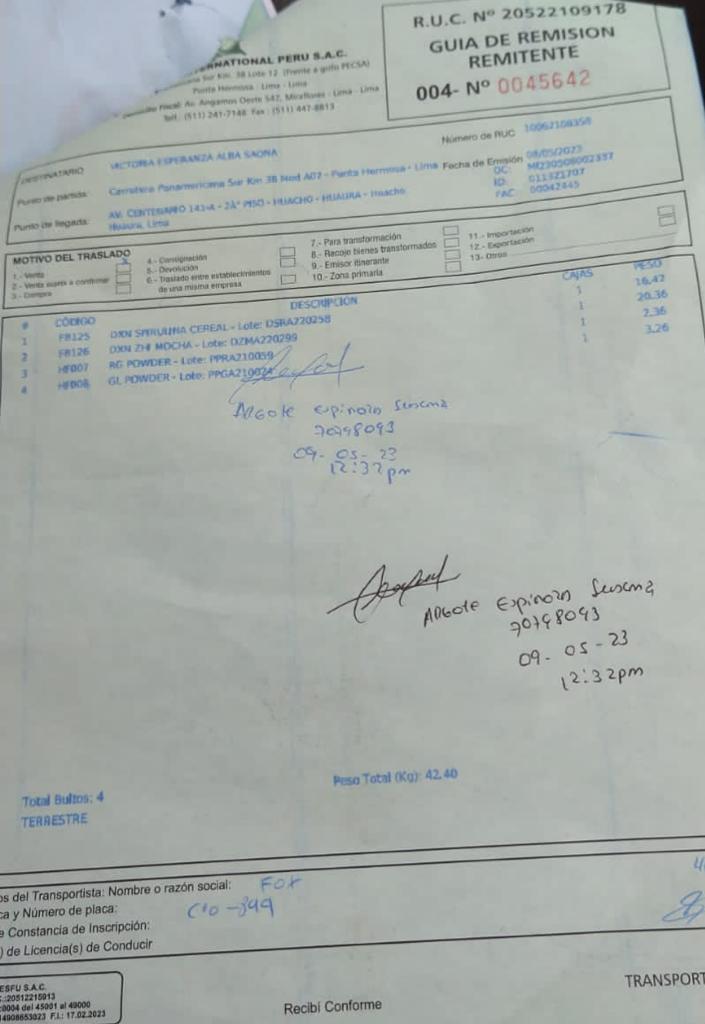 R.U.C. Nº 20522109178
GUIA DE REMISION
REMITENTE
004- Nº 0045642
PERU S.A.C.
Sur Km. 38 Lote 12 (Frente a grifo PECSA)
Punta Hermosa - Lima - Lima
Fiscal: Av. Angamos Oeste 547, Miraflores - Lima - Lima
Telf.: (511) 241-7148 Fax: (511) 447-8813
DESTINATARIO VICTORIA ESPERANZA ALBA SAONA
Número de RUC 10062108358
Punto de partida: Carretera Panamericana Sur Km 38 Mod A07 - Punta Hermosa - Lima
Fecha de Emisión 08/05/2023
OC: MI230508002337
Punto de llegada: AV. CENTENARIO 143-A - 2Aª PISO - HUACHO - HUAURA - Huacho
Huaura, Lima
ID: 011321707
FAC: 00042445
MOTIVO DEL TRASLADO
1.- Venta X
2.- Venta sujeta a confirmar
3.- Compra
4.- Consignación
5.- Devolución
6.- Traslado entre establecimientos
de una misma empresa
7.- Para transformación
8.- Recojo bienes transformados
9.- Emisor itinerante
10.- Zona primaria
11.- Importación
12.- Exportación
13.- Otros
# CÓDIGO DESCRIPCIÓN CAJAS PESO
1 FB125 DXN SPIRULINA CEREAL - Lote: DSRA220258 1 16,42
2 FB126 DXN ZHI MOCHA - Lote: DZMA220299 1 20,36
3 HF007 RG POWDER - Lote: PPRA210059 1 2,36
4 HF008 GL POWDER - Lote: 1 3,26
Argote Espinoza Susana
70798093
09-05-23
12:32pm
Argote Espinoza Susana
70798093
09-05-23
12:32pm
Peso Total (Kg): 42,40
Total Bultos: 4
TERRESTRE
os del Transportista: Nombre o razón social: FOX
ca y Número de placa:
e Constancia de Inscripción:
) de Licencia(s) de Conducir
ESFU S.A.C.
.:20512215913
:0004 del 45001 al 49000
14908653023 F.I.: 17.02.2023
Recibí Conforme
TRANSPORT